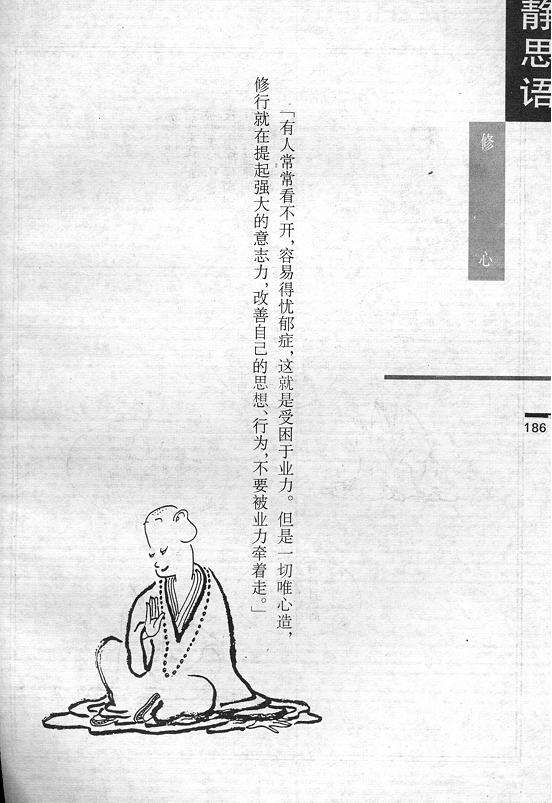 静思语
修心
「有人常常看不开，容易得忧郁症，这就是受困于业力。但是一切唯心造，
修行就在提起强大的意志力，改善自己的思想、行为，不要被业力牵着走。」
186